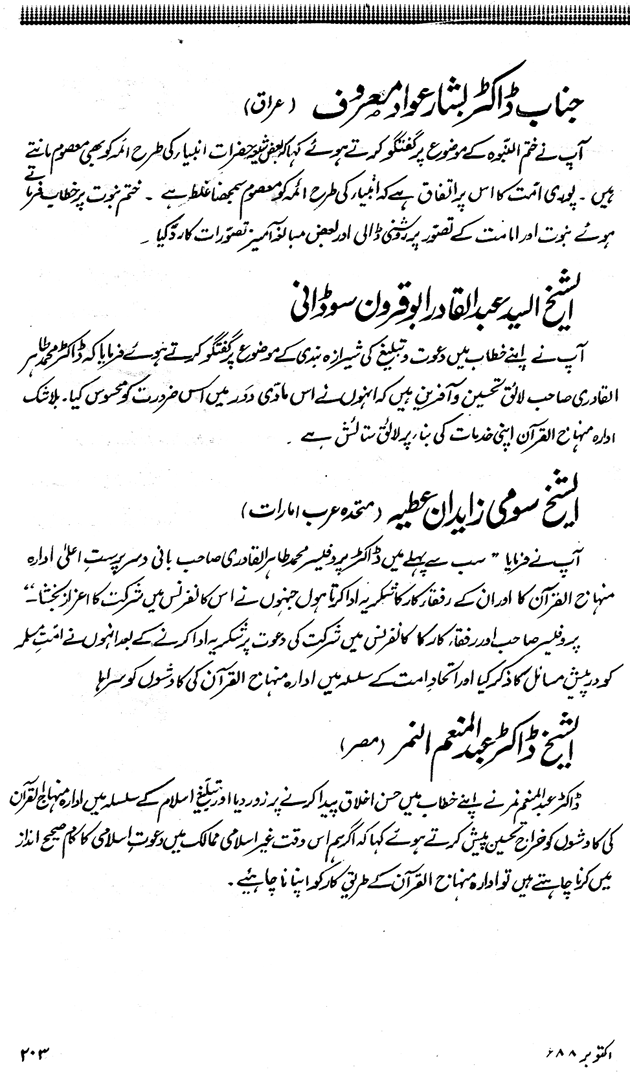 جناب ڈاکٹر بشار عواد معروف (عراق)
آپ نے ختم النبوۃ کے موضوع پر گفتگو کرتے ہوئے کہا کہ بعض شیعہ حضرات انبیاء کی طرح ائمہ کو بھی معصوم مانتے
ہیں ۔ پوری امت کا اس پر اتفاق ہے کہ انبیاء کی طرح ائمہ کو معصوم سمجھنا غلط ہے ۔ ختم نبوت پر خطاب فرماتے
ہوئے نبوت اور امامت کے تصور پر روشنی ڈالی اور بعض مبالغہ آمیز تصورات کا رد کیا ۔
الشیخ السید عبدالقادر ابو قرون سوڈانی
آپ نے اپنے خطاب میں دعوت و تبلیغ کی شیرازہ بندی کے موضوع پر گفتگو کرتے ہوئے فرمایا کہ ڈاکٹر محمد طاہر
القادری صاحب لائق تحسین و آفرین ہیں کہ انہوں نے اس مادی دور میں اس ضرورت کو محسوس کیا ۔ بلاشک
ادارہ منہاج القرآن اپنی خدمات کی بناء پر لائق ستائش ہے ۔
الشیخ سومی زایدان عطیہ (متحدہ عرب امارات)
آپ نے فرمایا " سب سے پہلے میں ڈاکٹر پروفیسر محمد طاہر القادری صاحب بانی و سرپرست اعلیٰ ادارہ
منہاج القرآن کا اور ان کے رفقاء کار کا شکریہ ادا کرتا ہوں جنہوں نے اس کانفرنس میں شرکت کا اعزاز بخشا ۔"
پروفیسر صاحب اور رفقاء کار کا کانفرنس میں شرکت کی دعوت پر شکریہ ادا کرنے کے بعد انہوں نے امت مسلمہ
کو درپیش مسائل کا ذکر کیا اور اتحاد امت کے سلسلہ میں ادارہ منہاج القرآن کی کاوشوں کو سراہا
الشیخ ڈاکٹر عبدالمنعم النمر (مصر)
ڈاکٹر عبدالمنعم نمر نے اپنے خطاب میں حسن اخلاق پیدا کرنے پر زور دیا اور تبلیغ اسلام کے سلسلہ میں ادارہ منہاج القرآن
کی کاوشوں کو خراج تحسین پیش کرتے ہوئے کہا کہ اگر ہم اس وقت غیر اسلامی ممالک میں دعوت اسلامی کا کام صحیح انداز
میں کرنا چاہتے ہیں تو ادارہ منہاج القرآن کے طریق کار کو اپنانا چاہئیے ۔
اکتوبر ۸۸ء
۲۰۳